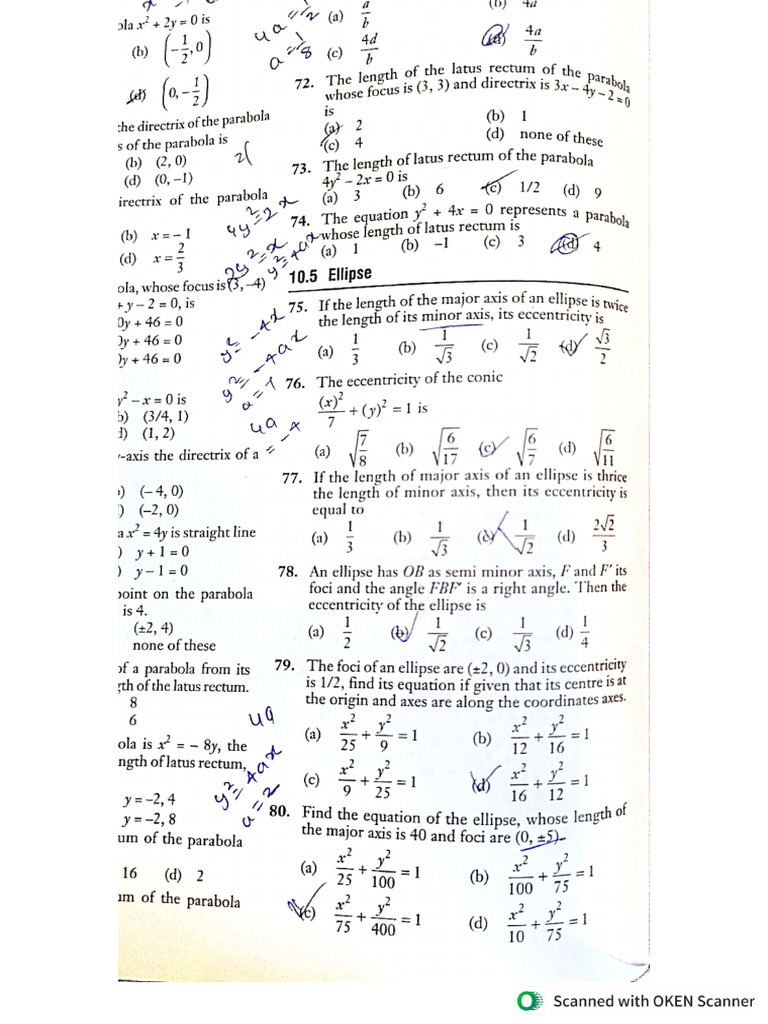 ola x² + 2y = 0 is
(b) (-1/2, 0)
(d) (0, -1/2)
the directrix of the parabola
s of the parabola is
(b) (2, 0)
(d) (0, -1)
irectrix of the parabola
(b) x = - 1
(d) x = 2/3
ola, whose focus is (3, -4)
+ y - 2 = 0, is
0y + 46 = 0
0y + 46 = 0
0y + 46 = 0
y² - x = 0 is
b) (3/4, 1)
d) (1, 2)
-axis the directrix of a
) (- 4, 0)
) (-2, 0)
a x² = 4y is straight line
) y + 1 = 0
) y - 1 = 0
point on the parabola
is 4.
(±2, 4)
none of these
of a parabola from its
gth of the latus rectum.
8
6
ola is x² = - 8y, the
ngth of latus rectum,
y = -2, 4
y = -2, 8
um of the parabola
16 (d) 2
um of the parabola
4a = 1/2
a = 1/8
4y² = 2x
2y² = x
y² = 4ax
y² = -4x
y² = -4ax
a = 1
4a = -4
4a
y² = 4ax
a = 2
(a) a/b (b) 4a
(c) 4d/b (d) 4a/b
72. The length of the latus rectum of the parabola
whose focus is (3, 3) and directrix is 3x - 4y - 2 = 0
is
(a) 2 (b) 1
(c) 4 (d) none of these
73. The length of latus rectum of the parabola
4y² - 2x = 0 is
(a) 3 (b) 6 (c) 1/2 (d) 9
74. The equation y² + 4x = 0 represents a parabola
whose length of latus rectum is
(a) 1 (b) -1 (c) 3 (d) 4
10.5 Ellipse
75. If the length of the major axis of an ellipse is twice
the length of its minor axis, its eccentricity is
(a) 1/3 (b) 1/√3 (c) 1/√2 (d) √3/2
76. The eccentricity of the conic
(x)²/7 + (y)² = 1 is
(a) √(7/8) (b) √(6/17) (c) √(6/7) (d) √(6/11)
77. If the length of major axis of an ellipse is thrice
the length of minor axis, then its eccentricity is
equal to
(a) 1/3 (b) 1/√3 (c) 1/√2 (d) 2√2/3
78. An ellipse has OB as semi minor axis, F and F' its
foci and the angle FBF' is a right angle. Then the
eccentricity of the ellipse is
(a) 1/2 (b) 1/√2 (c) 1/√3 (d) 1/4
79. The foci of an ellipse are (±2, 0) and its eccentricity
is 1/2, find its equation if given that its centre is at
the origin and axes are along the coordinates axes.
(a) x²/25 + y²/9 = 1 (b) x²/12 + y²/16 = 1
(c) x²/9 + y²/25 = 1 (d) x²/16 + y²/12 = 1
80. Find the equation of the ellipse, whose length of
the major axis is 40 and foci are (0, ±5).
(a) x²/25 + y²/100 = 1 (b) x²/100 + y²/75 = 1
(c) x²/75 + y²/400 = 1 (d) x²/10 + y²/75 = 1
Scanned with OKEN Scanner